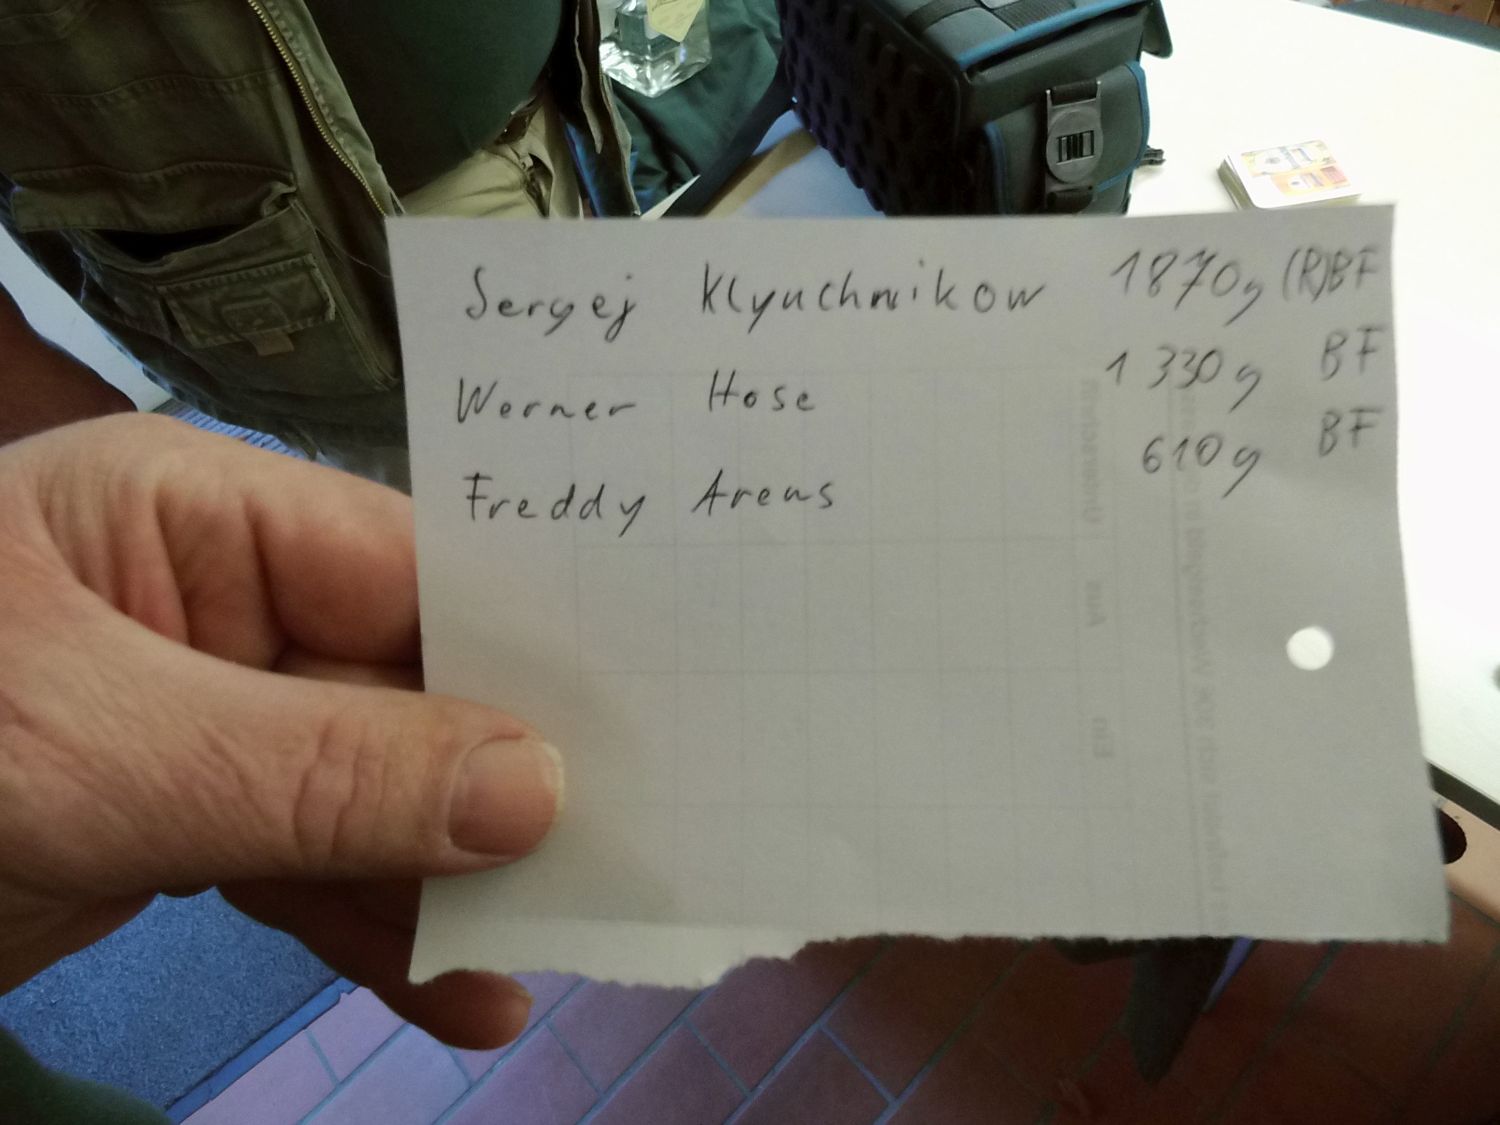 Sergej Klyuchnikow 1870g (R)BF
Werner Hose 1330g BF
Freddy Arens 610g BF